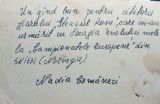 Un gînd bun pentru cititorii
ziarului "Steagul Roșu", care m-au
urmărit cu ocazia evoluției mele
la "Campionatele europene" din
SKIEN (Norvegia)
Nadia Comăneci